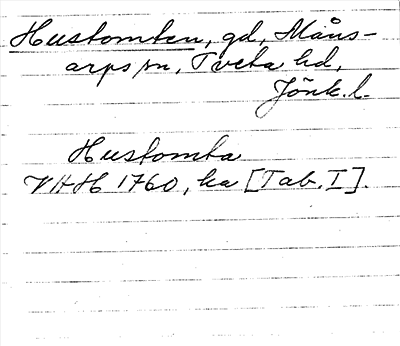 Hustomten, gd, Måns-
arps sn, Tveta hd,
Jönk. l.
Hustomta
VAH 1760, ka [Tab. I].